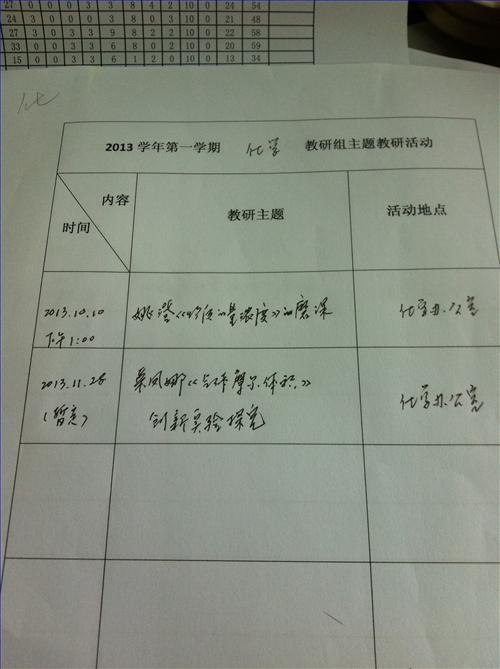 27 0 0 0 3 3 8 4 2 10 0 24 54
24 0 0 0 3 8 0 10 0 21 48
27 3 0 3 3 9 8 2 10 0 22 58
33 0 0 3 3 6 8 2 10 0 20 59
15 0 0 3 3 6 1 2 0 10 0 13 34
化
2013 学年第一学期 化学 教研组主题教研活动
内容
时间
教研主题
活动地点
2013.10.10
下午1:00
《物质的量浓度》的磨课
化学办公室
2013.11.28
(暂定)
《气体摩尔体积》
创新实验探究
化学办公室